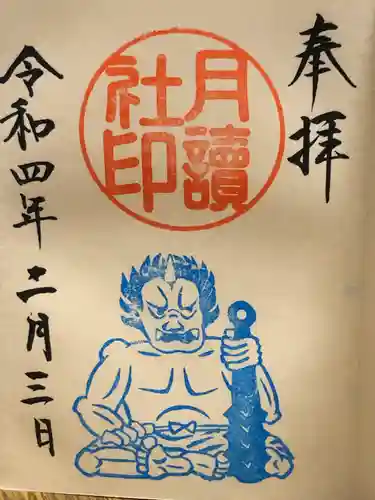 奉拝
月讀
社印
令和四年二月三日